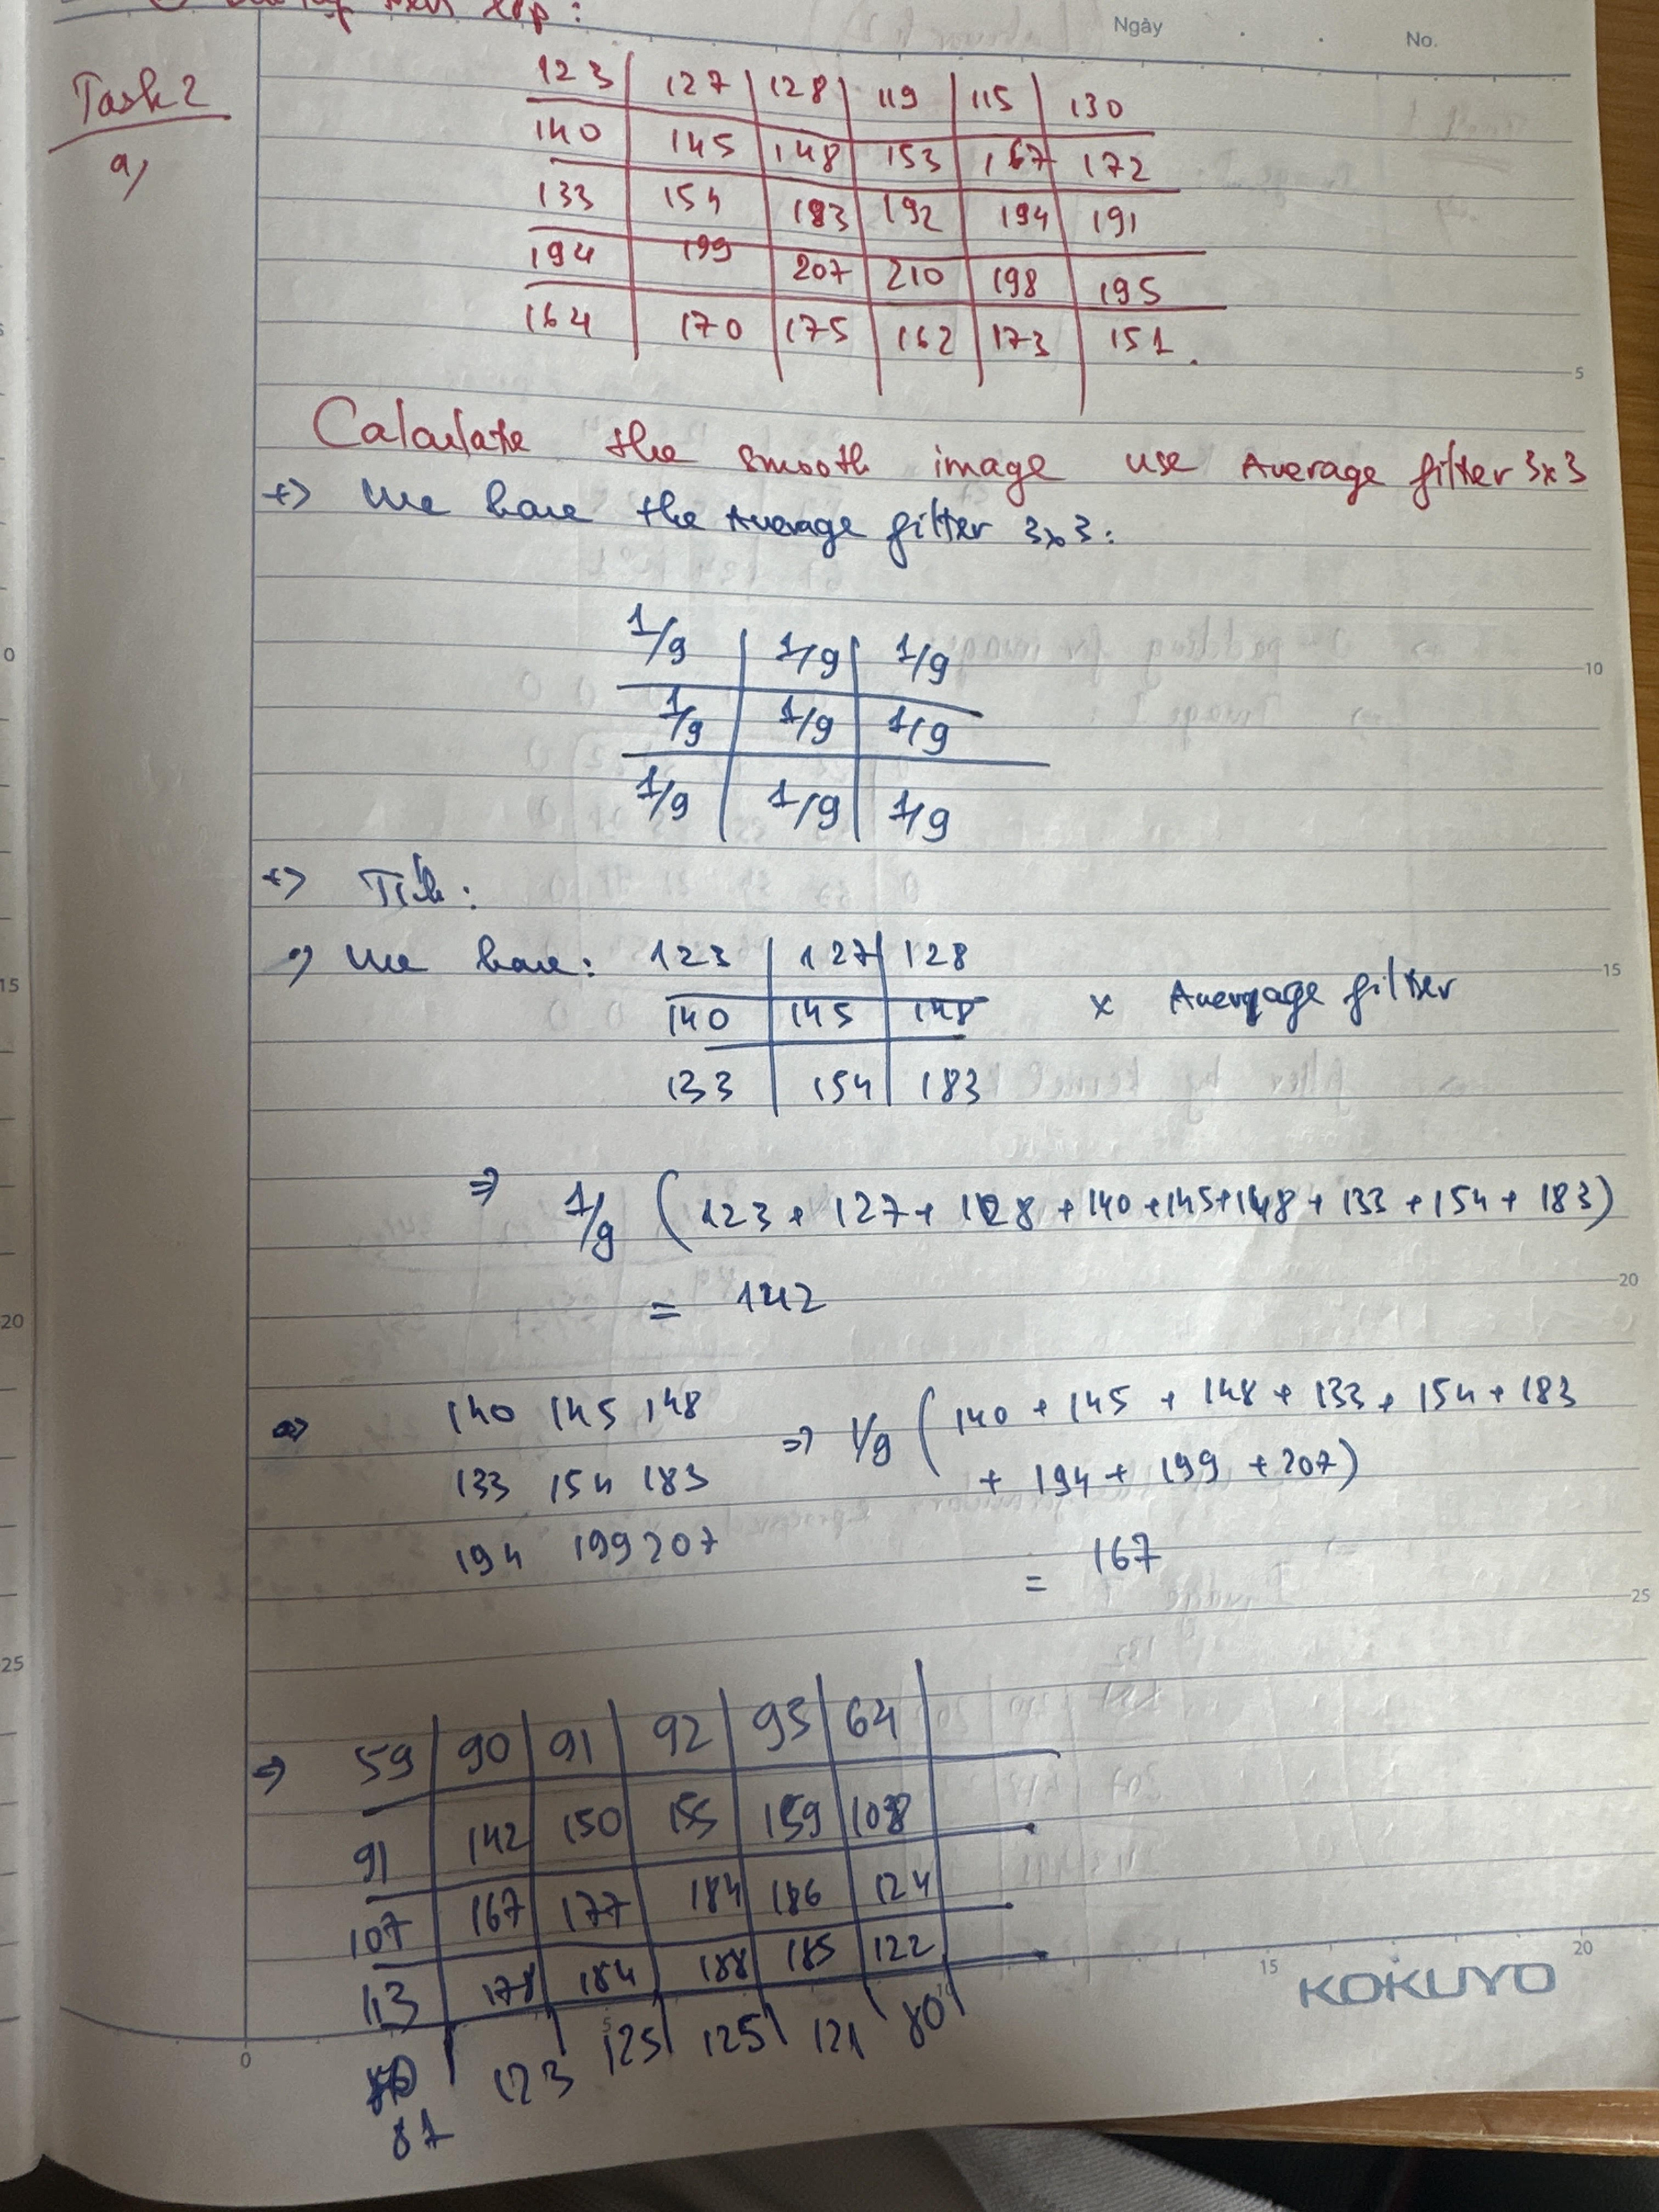 xếp :
Ngày
No.
Task 2
a)
123 127 128 119 115 130
140 145 148 153 167 172
133 154 183 192 194 191
194 199 207 210 198 195
164 170 175 162 173 151.
5
Calculate the smooth image use Average filter 3x3
+> We have the Average filter 3x3:
1/9 1/9 1/9
10
1/9 1/9 1/9
1/9 1/9 1/9
+>
=> We have: 123 127 128
15
140 145 148 x Averqage filter
133 154 183
=> 1/9 (123 + 127 + 128 + 140 + 145 + 148 + 133 + 154 + 183)
= 142
20
=> 140 145 148 => 1/9 (140 + 145 + 148 + 133 + 154 + 183
133 154 183 + 194 + 199 + 207)
194 199 207 = 167
25
=> 59 90 91 92 93 64
91 142 150 155 159 108
107 167 177 184 186 124
113 178 184 188 185 122
123 125 125 121 80
81
0
5
10
15
20
KOKUYO
0
15
20
25